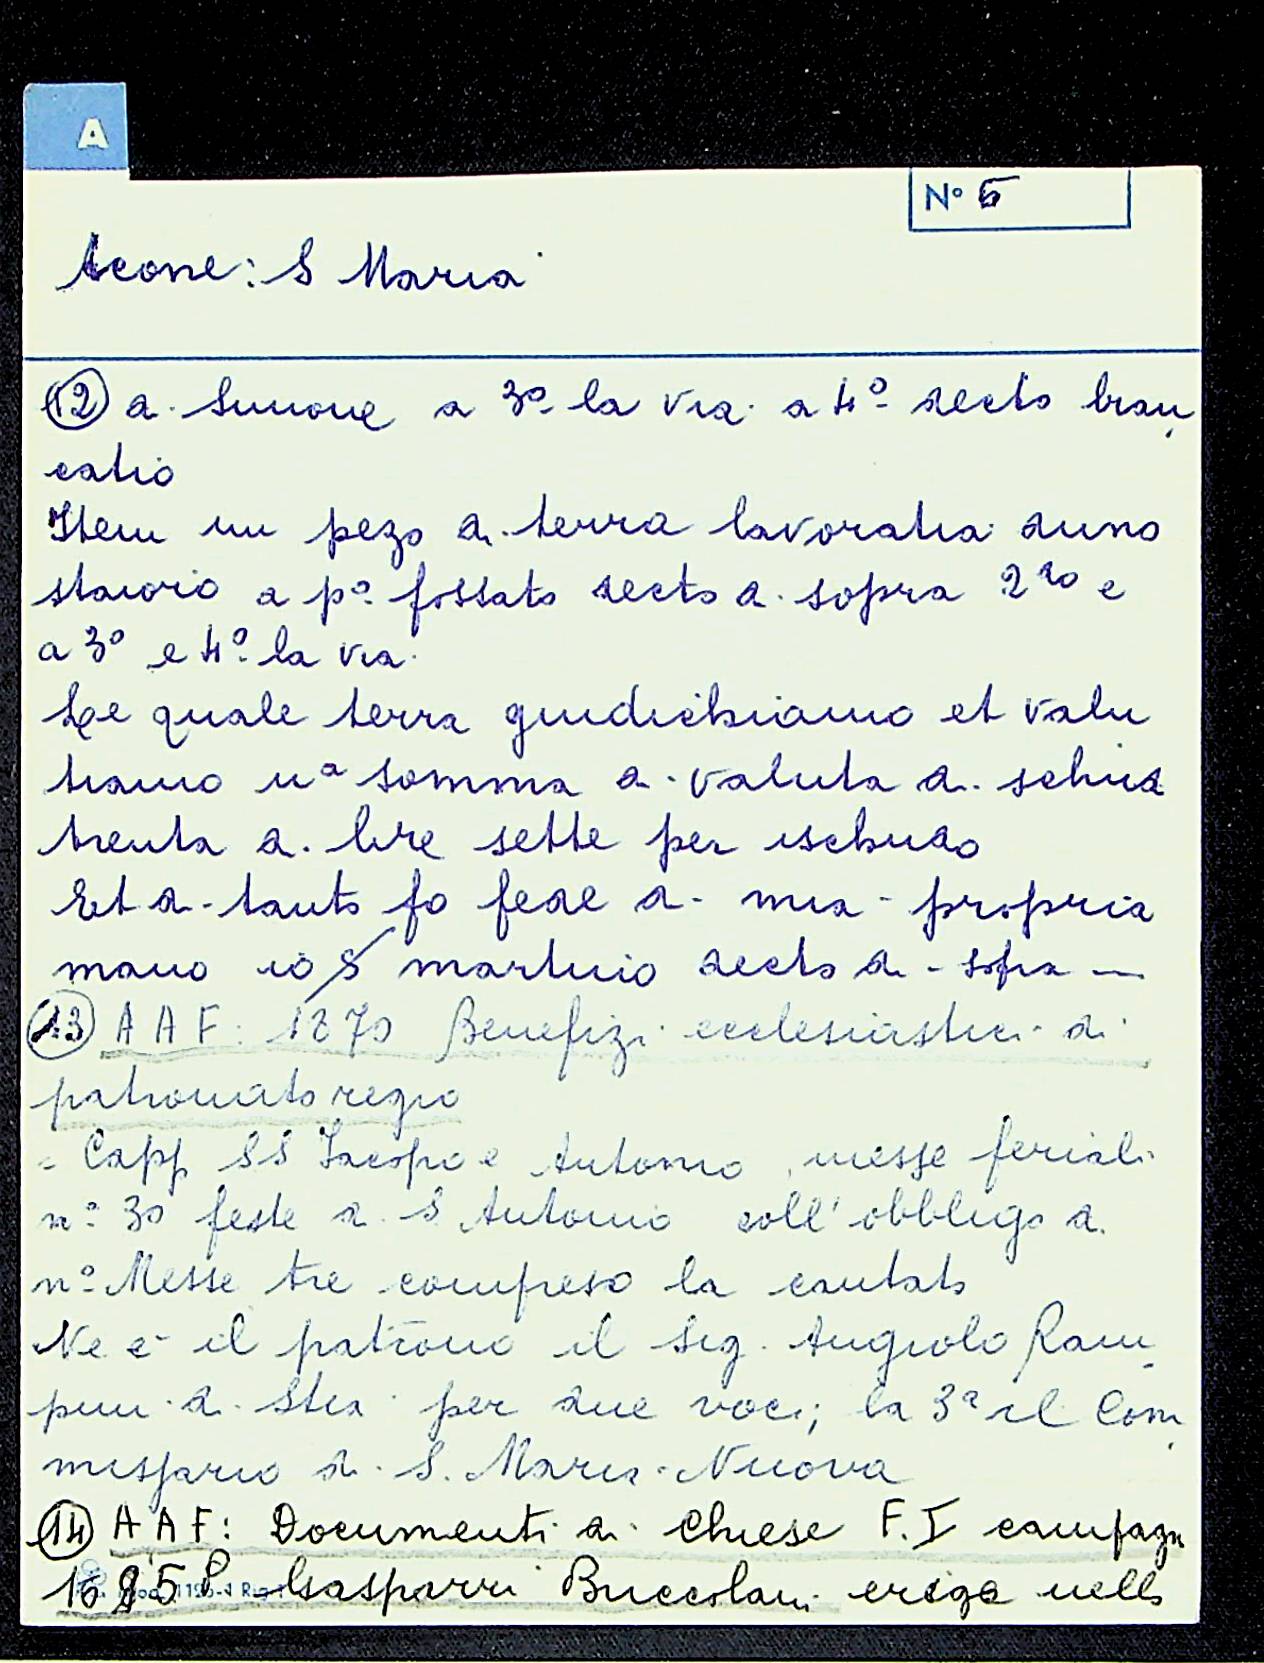 A
N° 6
Acone: S Maria
(12) di Simone a 3° la via a 4° decto bran
catio
Item un pezo di terra lavoratia duno
staioro a p° fossato decto di sopra 2do e
a 3° e 4° la via
Le quale terra giudichiamo et valu
tiamo in somma di valuta di schudi
trenta di lire sette per ischudo
Et di tanto fo fede di mia propria
mano io S martinio decto di sopra —
(13) A A F: 1870 Benefizi ecclesiastici di
patronato regio
= Capp SS Iacopo e Antonio, messe feriali
n° 30 feste di S Antonio coll'obbligo di
n° Messe tre compreso la cantata
Ne è il patrono il Sig. Angiolo Ram
pini di Stia per due voci; la 3a il Com
missario di S. Maria Nuova
(14) A A F: Documenti di Chiese F. I campagn
Gasparri Buccolani erige nello